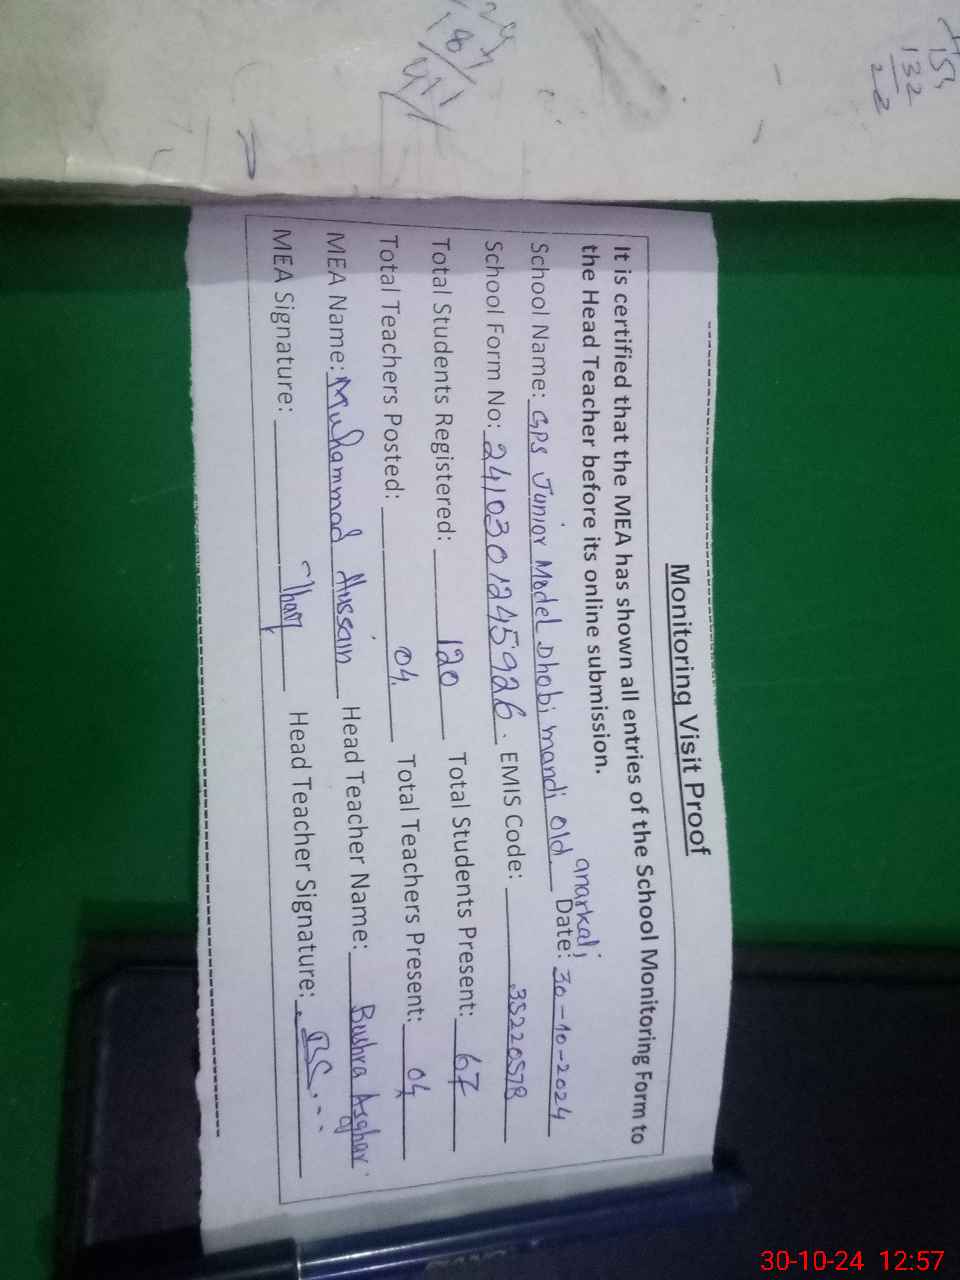 Monitoring Visit Proof
It is certified that the MEA has shown all entries of the School Monitoring Form to
the Head Teacher before its online submission.
School Name: GPS Junior Model Dhobi mandi old anarkali Date: 30-10-2024
School Form No: 2410301245926. EMIS Code: 35220578
Total Students Registered: 120 Total Students Present: 67
Total Teachers Posted: 04 Total Teachers Present: 04
MEA Name: Muhammad Hussain Head Teacher Name: Bushra Asghar
MEA Signature: Head Teacher Signature:
132
22
30-10-24 12:57